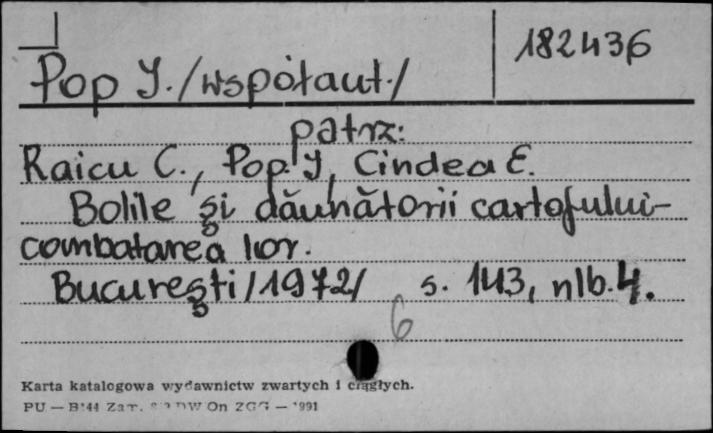 182436
Pop J. /współaut./
patrz:
Raicu C., Pop. J, Cindea E.
Bolile şi dăunătorii cartofului-
combatarea lor.
Bucureşti /1972/ s. 143, nlb. 4.
6
Karta katalogowa wydawnictw zwartych i ciągłych.
PU — Zam. DW On ZGG —